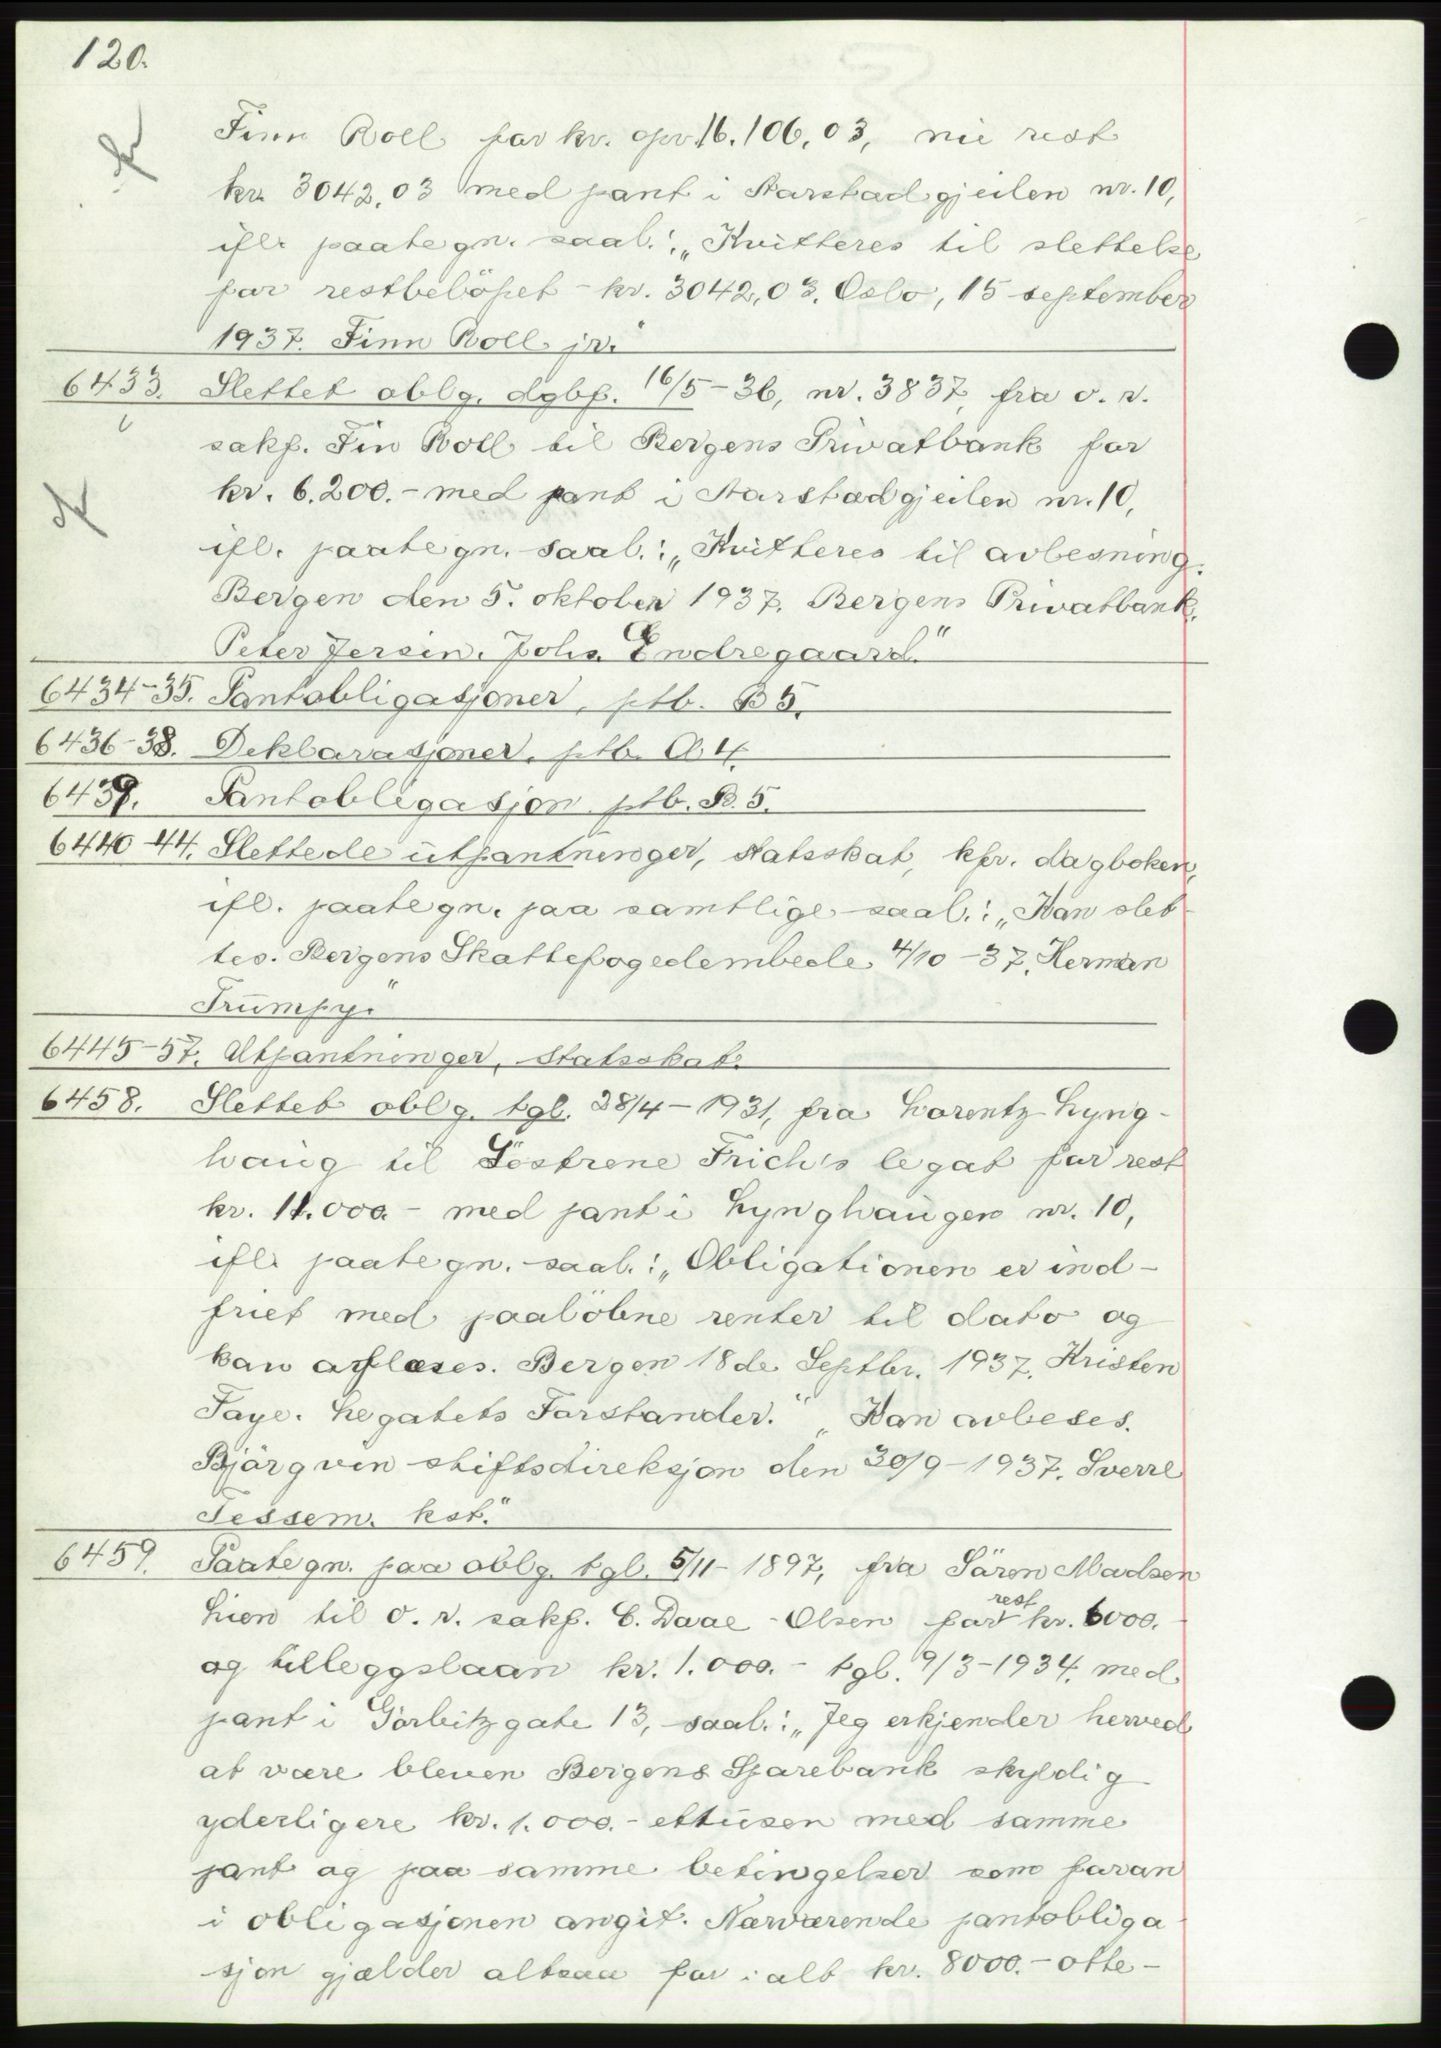 120.
Finn Roll for kr. opr. 16.106,03, nu rest
kr. 3042,03 med pant i Aarstadgjeilen nr. 10,
ifl. paategn. saal.: „Kvitteres til slettelse
for restbelöpet - kr. 3042,03. Oslo, 15 september
1937. Finn Roll jr."
6433. Slettet oblg. dgbf. 16/5-36, nr. 3837, fra o. r.
sakf. Fin Roll til Bergens Privatbank for
kr. 6.200.- med pant i Aarstadgjeilen nr. 10,
ifl. paategn. saal.: „Kvitteres til avlesning.
Bergen den 5. oktober 1937. Bergens Privatbank.
Peter Jersin. Johs. Endregaard."
6434-35. Pantobligasjoner, ptb. B 5.
6436-38. Deklarasjoner, ptb. A 4.
6439. Pantobligasjon ptb. B. 5.
6440-44. Slettede utpantninger, statsskat, kfr. dagboken,
ifl. paategn. paa samtlige saal.: „Kan slet-
tes. Bergens Skattefogedembede 4/10-37. Herman
Trumpy."
6445-57. Utpantninger, statsskat.
6458. Slettet oblg. tgl. 28/4-1931, fra Lorentz Lyng-
haug til Söstrene Frich's legat for rest
kr. 11.000.- med pant i Lynghaugen nr. 10,
ifl. paategn. saal.: „Obligationen er ind-
friet med paalöbne renter til dato og
kan aflæses. Bergen 18de Septbr. 1937. Kristen
Faye. Legatets Forstander." „Kan avleses.
Björgvin stiftsdireksjon den 30/9-1937. Sverre
Tessem. kst."
6459. Paategn. paa oblg. tgl. 5/11-1897, fra Sören Madsen
Lien til o. r. sakf. C. Daae-Olsen for rest kr. 6000.-
og tilleggslaan kr. 1.000.- tgl. 9/3-1934, med
pant i Görbitzgate 13, saal.: „Jeg erkjender herved
at være bleven Bergens Sparebank skyldig
yderligere kr. 1.000.- ettusen med samme
pant og paa samme betingelser som foran
i obligasjonen angit. Nærværende pantobliga-
sjon gjælder altsaa for ialt kr. 8000.- otte-